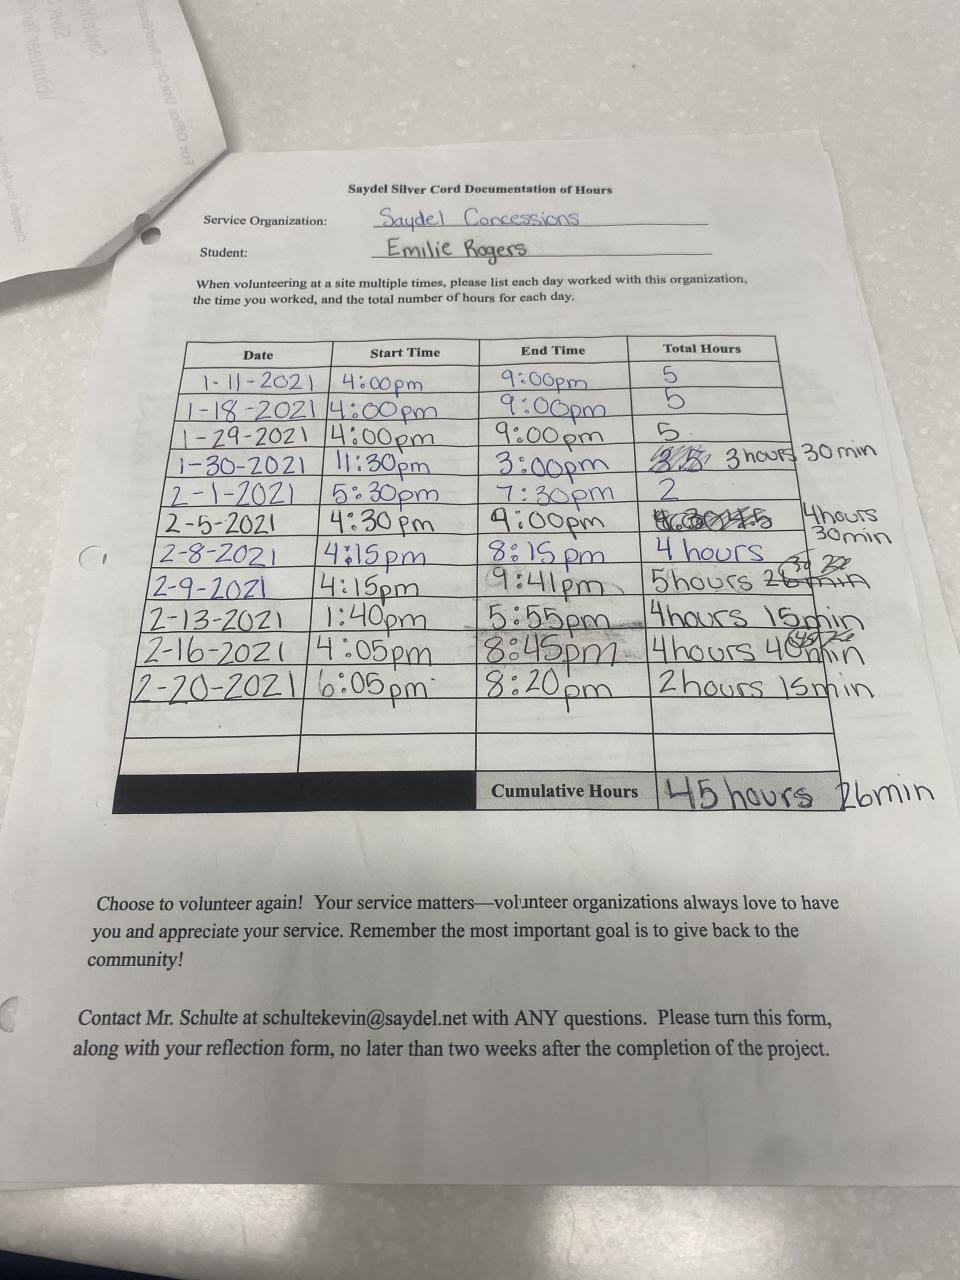 Saydel Silver Cord Documentation of Hours
Service Organization: Saydel Concessions
Student: Emilie Rogers
When volunteering at a site multiple times, please list each day worked with this organization,
the time you worked, and the total number of hours for each day.
Date Start Time End Time Total Hours
1-11-2021 4:00pm 9:00pm 5
1-18-2021 4:00pm 9:00pm 5
1-29-2021 4:00pm 9:00pm 5
1-30-2021 11:30pm 3:00pm 3 hours 30 min
2-1-2021 5:30pm 7:30pm 2
2-5-2021 4:30pm 9:00pm 4hours
30min
2-8-2021 4:15pm 8:15pm 4 hours
2-9-2021 4:15pm 9:41pm 5hours 26min
2-13-2021 1:40pm 5:55pm 4hours 15min
2-16-2021 4:05pm 8:45pm 4hours 40min
2-20-2021 6:05pm 8:20pm 2hours 15min
Cumulative Hours 45hours 26min
Choose to volunteer again! Your service matters—volunteer organizations always love to have
you and appreciate your service. Remember the most important goal is to give back to the
community!
Contact Mr. Schulte at schultekevin@saydel.net with ANY questions. Please turn this form,
along with your reflection form, no later than two weeks after the completion of the project.